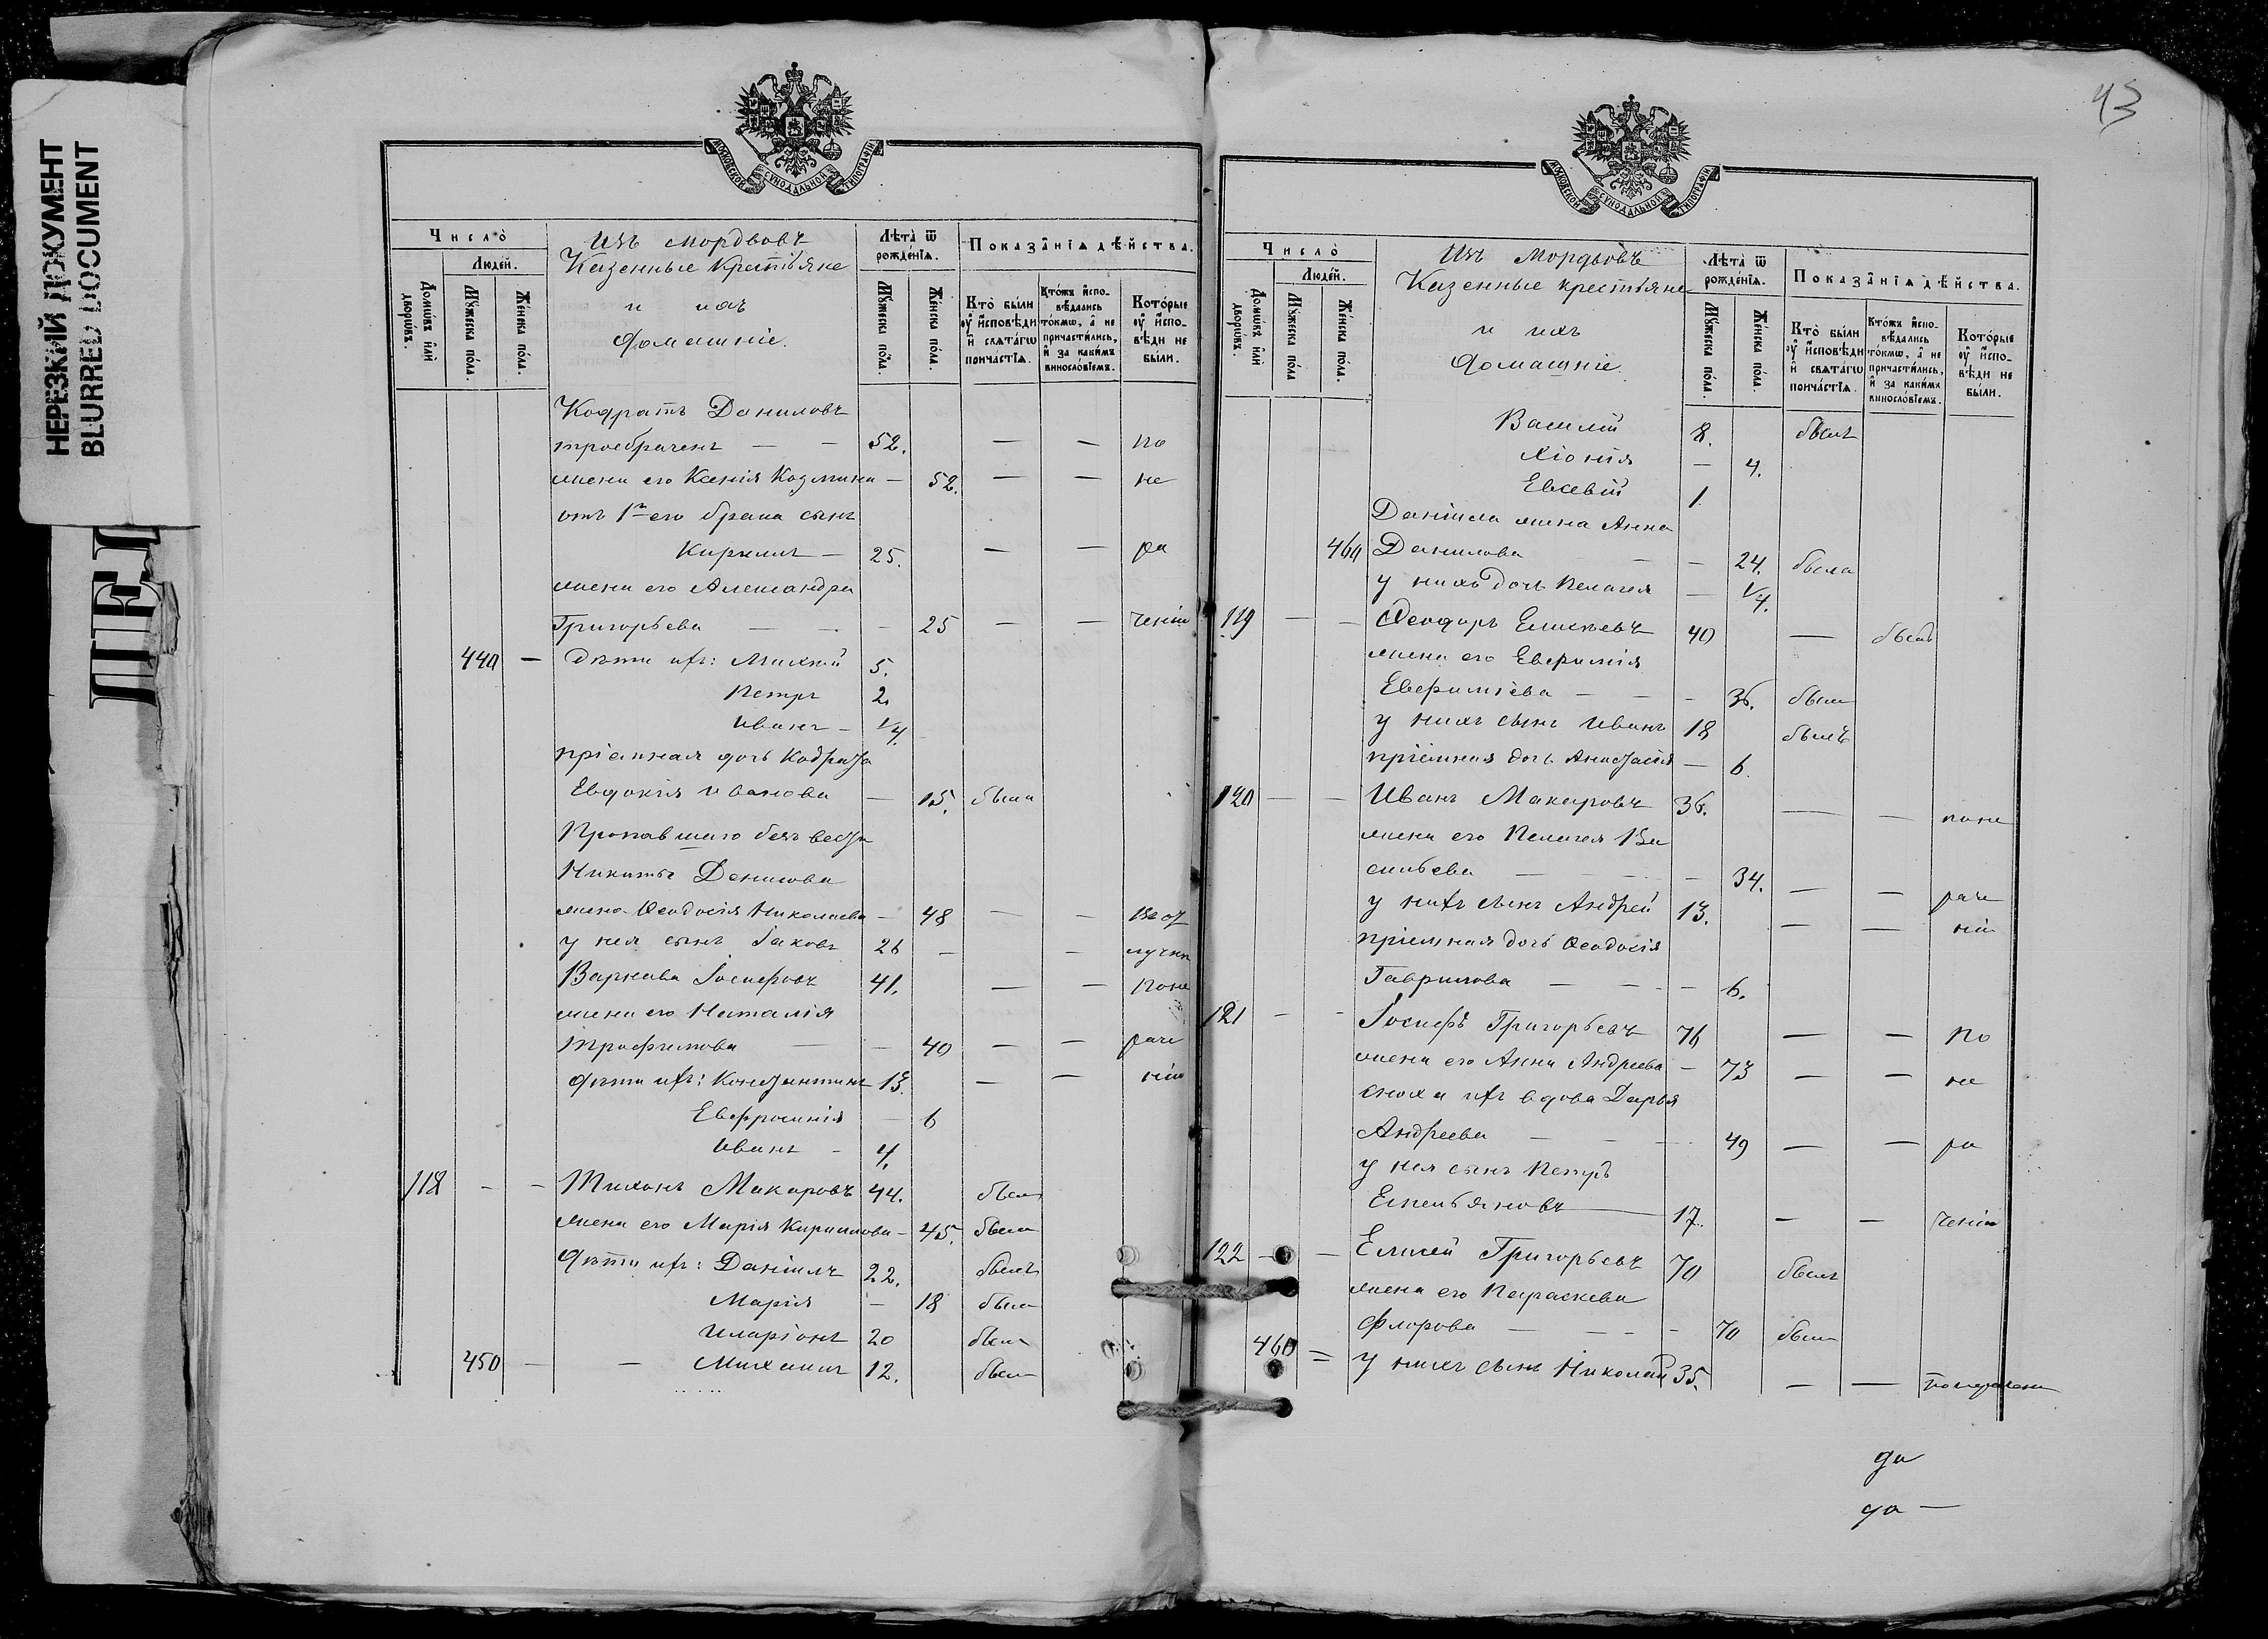 НЕРЕЗКИЙ ДОКУМЕНТ
BLURRED DOCUMENT
МОСКОВСКОЙ СУНОДАЛЬНОЙ ТИПОГРАФІИ
Число̀
Людей.
Домѡвъ и҆лѝ дворѡвъ.
Мꙋ́жеска по́ла.
Же́нска по́ла.
Изъ мордвовъ
Казенные Крестьяне
и ихъ
домашніе.
Лѣта̀ ѿ рожде́нїѧ.
Мꙋ́жеска по́ла.
Же́нска по́ла.
Показа̂нїѧ дѣ́йства.
Кто̀ бы́ли оу҆ и҆сповѣди и҆ свѧта́гѡ причастїѧ.
Кто́жъ и҆спо-вѣдались то́кмѡ, а҆ не причасти́лись, и҆ за каки́мъ винослові́емъ.
Кото́рые оу҆ и҆спо-вѣди не бы́ли.
Кодратъ Даниловъ
троебраченъ — — 52. — — по
жена его Ксенія Козмина — 52. — — не
отъ 1го его брака сынъ
Кириллъ — 25. — — ра
жена его Александра
Григорьева — — 25 — — ченію
440 — дѣти ихъ: Алексѣй 5.
Петръ 2.
Иванъ — 1/4.
пріемная дочь Кодрата
Евдокія Иванова — 15. была
Пропавшаго безъ вести
Никиты Данилова
жена Ѳеодосія Николаева — 48 — — по от
у нея сынъ Іаковъ 26 — — лучкѣ
Варнава Іосифовъ 41. — — По не
жена его Наталія
Трофимова — — 40 — — раче
дѣти ихъ: Константинъ 13. — — нію
Евфросинія — 6
Иванъ — 4.
118 — — Тихонъ Макаровъ 44. былъ
жена его Марія Кириллова — 45. была
Дѣти ихъ: Даніилъ 22. былъ
Марія — 18 была
Иларіонъ 20 былъ
450 — — Михаилъ 12. былъ
43
МОСКОВСКОЙ СУНОДАЛЬНОЙ ТИПОГРАФІИ
Число̀
Людей.
Домѡвъ и҆лѝ дворѡвъ.
Мꙋ́жеска по́ла
Же́нска по́ла.
Изъ Мордвовъ
Казенные крестьяне
и ихъ
домашніе.
Лѣта̀ ѿ рожде́нїѧ.
Мꙋ́жеска по́ла.
Же́нска по́ла.
Показа̂нїѧ дѣ́йства.
Кто̀ бы́ли оу҆ и҆сповѣди и҆ свѧта́гѡ причастїѧ.
Кто́жъ и҆спо-вѣдались то́кмѡ, а҆ не причасти́лись, и҆ за каки́мъ винослові́емъ.
Кото́рые оу҆ и҆спо-вѣди не бы́ли.
Василій 8. былъ
Хіонія — 4.
Евсевій 1.
Даніила жена Анна
460 Данилова — — 24. была
у нихъ дочь Пелагея — 1/4.
119 — — Ѳеодоръ Елисѣевъ 40 — былъ
жена его Евфимія
Евфиміева — — — 36. была
у нихъ сынъ Иванъ 18 былъ
пріемная дочь Анастасія — 6.
120 — — Иванъ Макаровъ 36. — — по не
жена его Пелагея Ва
сильева — — 34. — — раче
у нихъ сынъ Андрей 13. — — нію
пріемная дочь Ѳеодосія
Гаврилова — — — 6.
121 — — Іосифъ Григорьевъ 76 — — по
жена его Анна Андреева — 73 — — не
сноха ихъ вдова Дарья
Андреева — — — 49 — — ра
у нея сынъ Петръ
Емельяновъ — 17. — — ченію
122 — — Елисей Григорьевъ 70 былъ
жена его Параскева
Флорова — — — 70 была
460 = у нихъ сынъ Николай 35. — —
да
да —